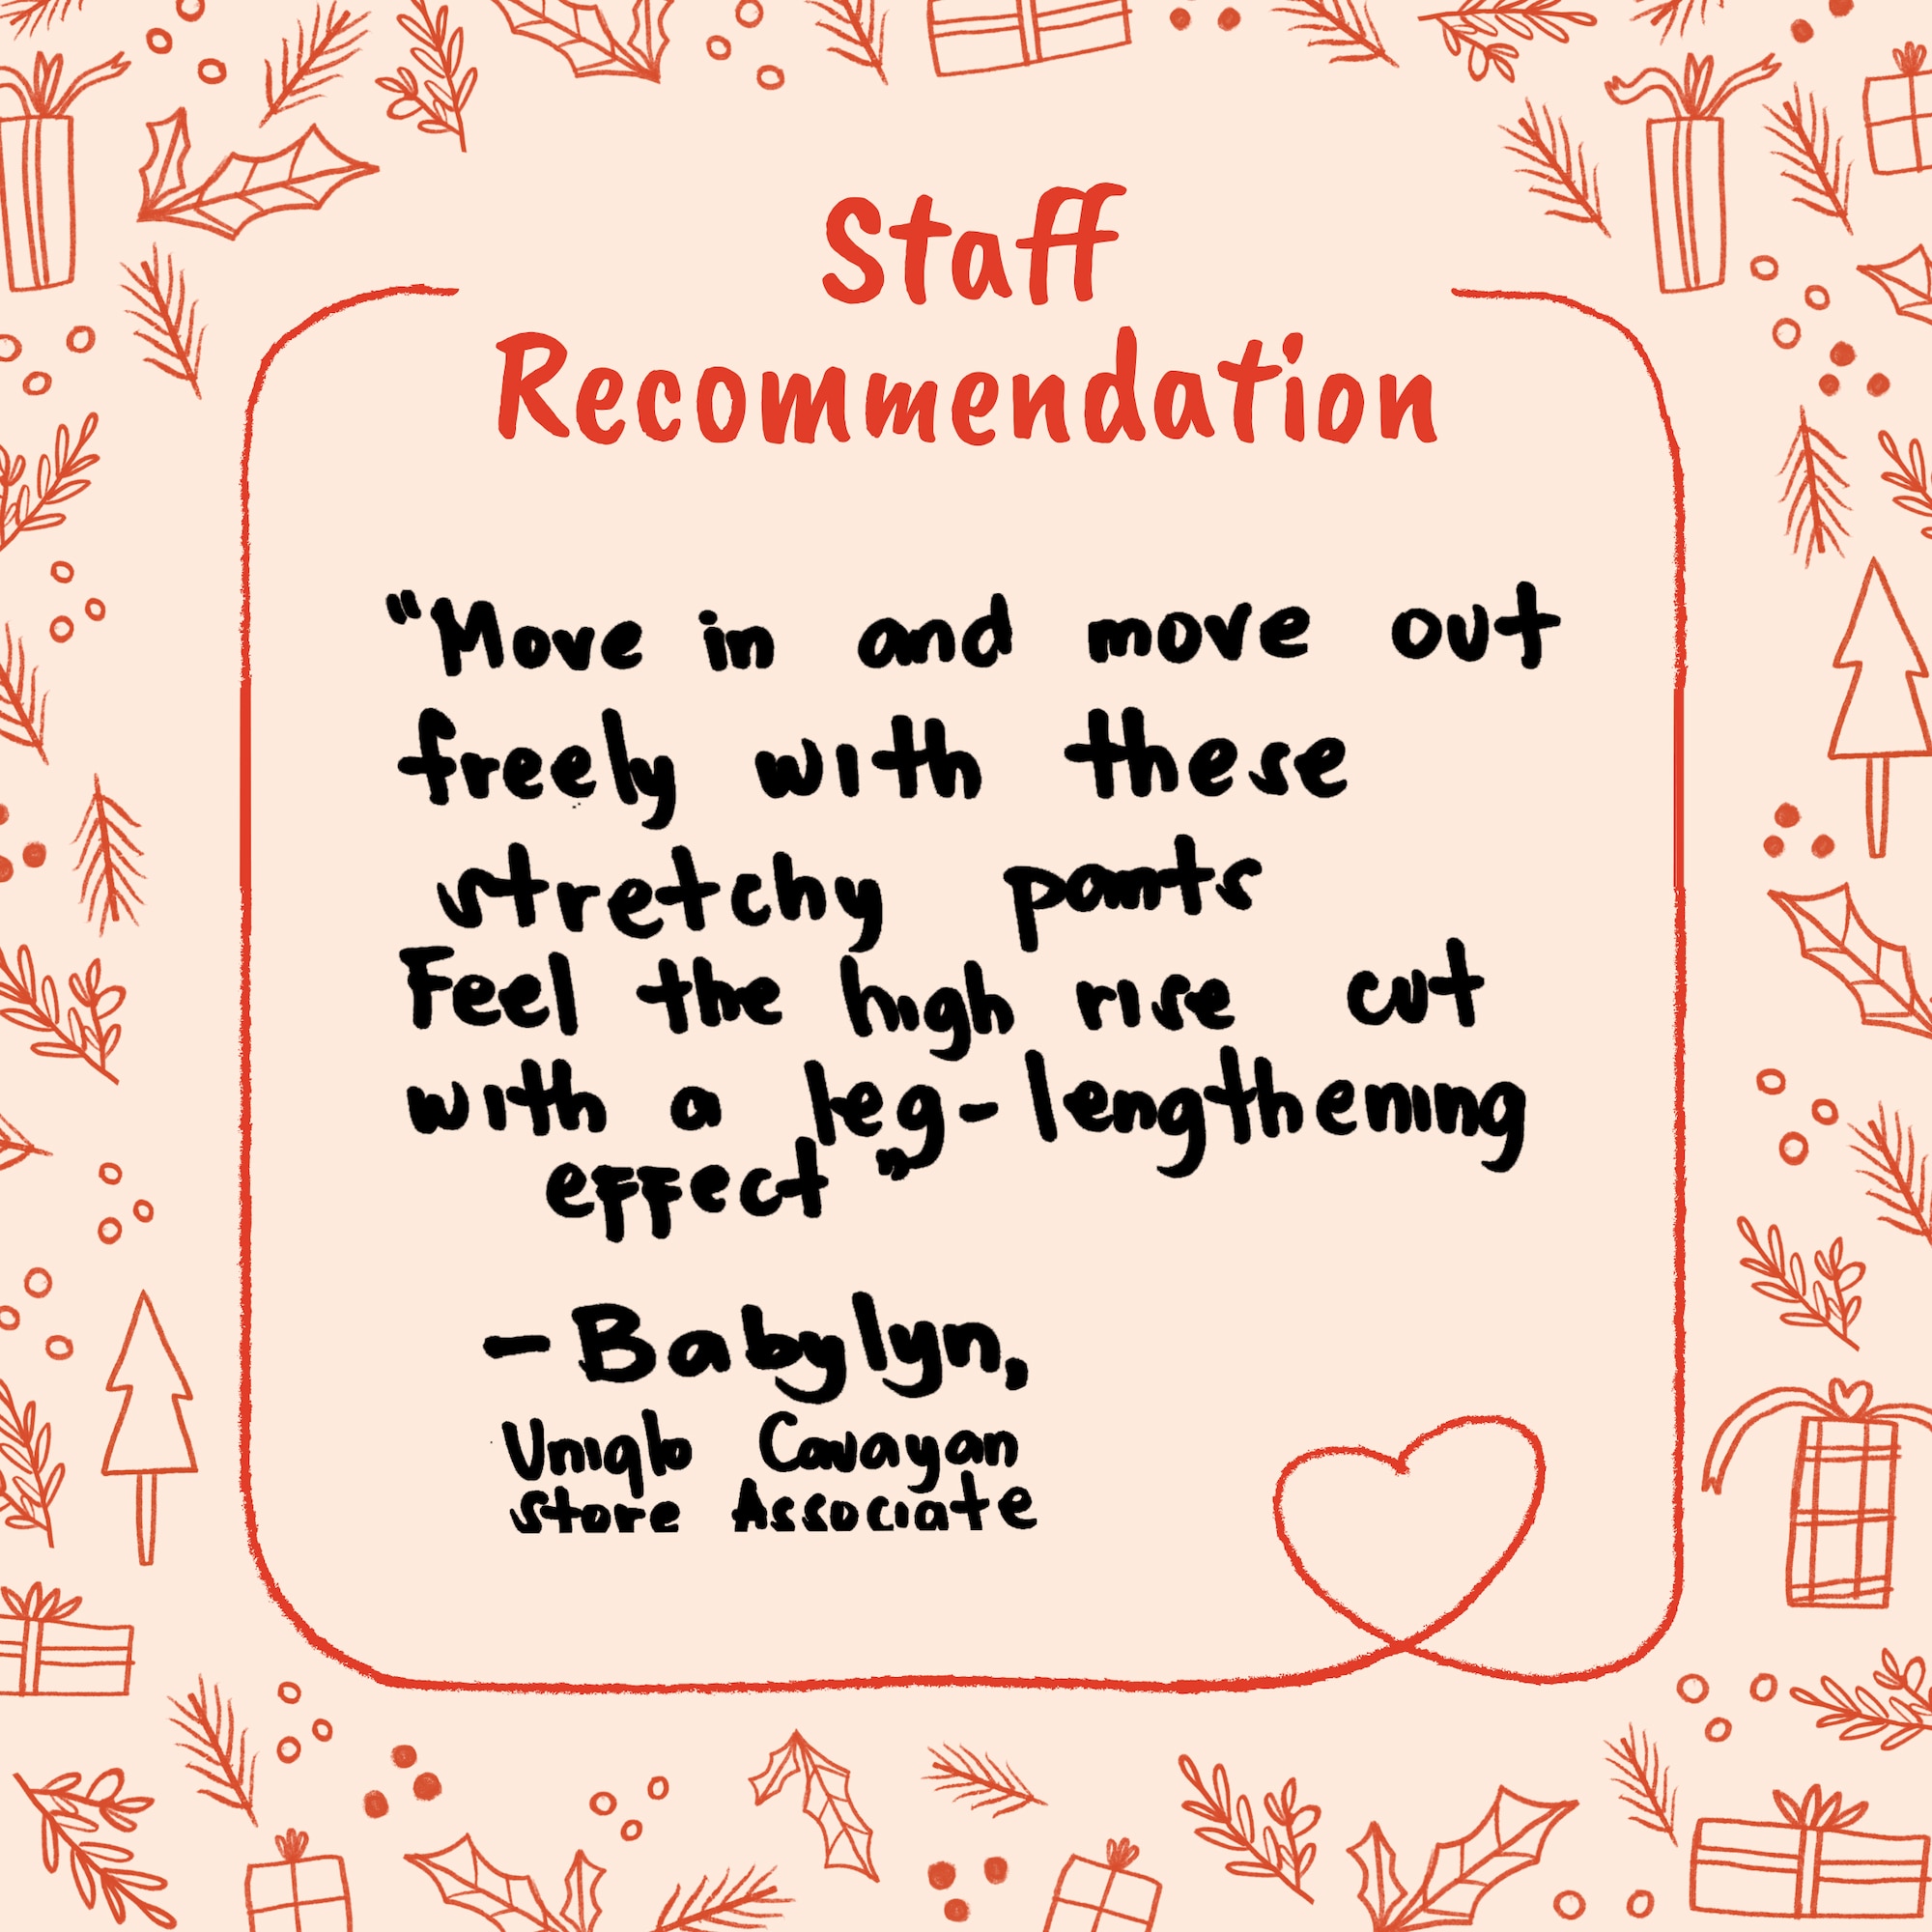 Staff
Recommendation
"Move in and move out
freely with these
stretchy pants
Feel the high rise cut
with a leg-lengthening
effect"
-Babylyn,
Uniqlo Cauayan
Store Associate